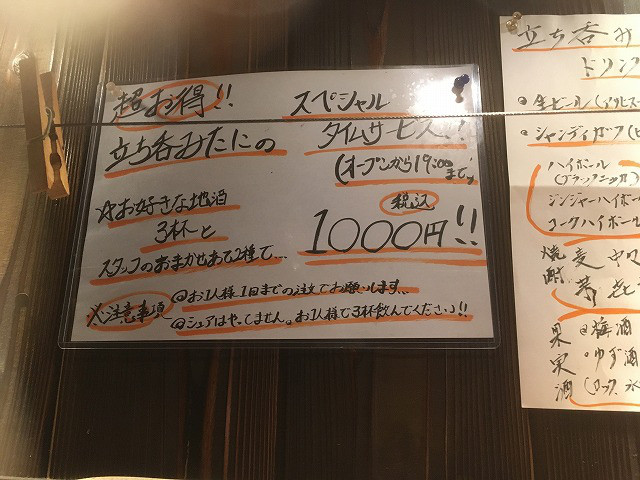 超お得!!
スペシャル
立ち呑みたにの
タイムサービス!!
(オープンから19:00まで)
☆お好きな地酒
3杯と
スタッフのおまかせあて2種で…
税込
1000円!!
※注意事項
◎お1人様1回までの注文でお願いします…
◎シェアはやってません。お1人様で3杯飲んでください!!
立ち呑み
ドリン
◎生ビール(アサヒス
◎シャンディガフ(ビ
ハイボール
(ブラックニッカ)
ジンジャーハイボー
コークハイボール
焼酎
麦
芋
果実酒
◎梅酒
◎ゆず酒
(ロック、水